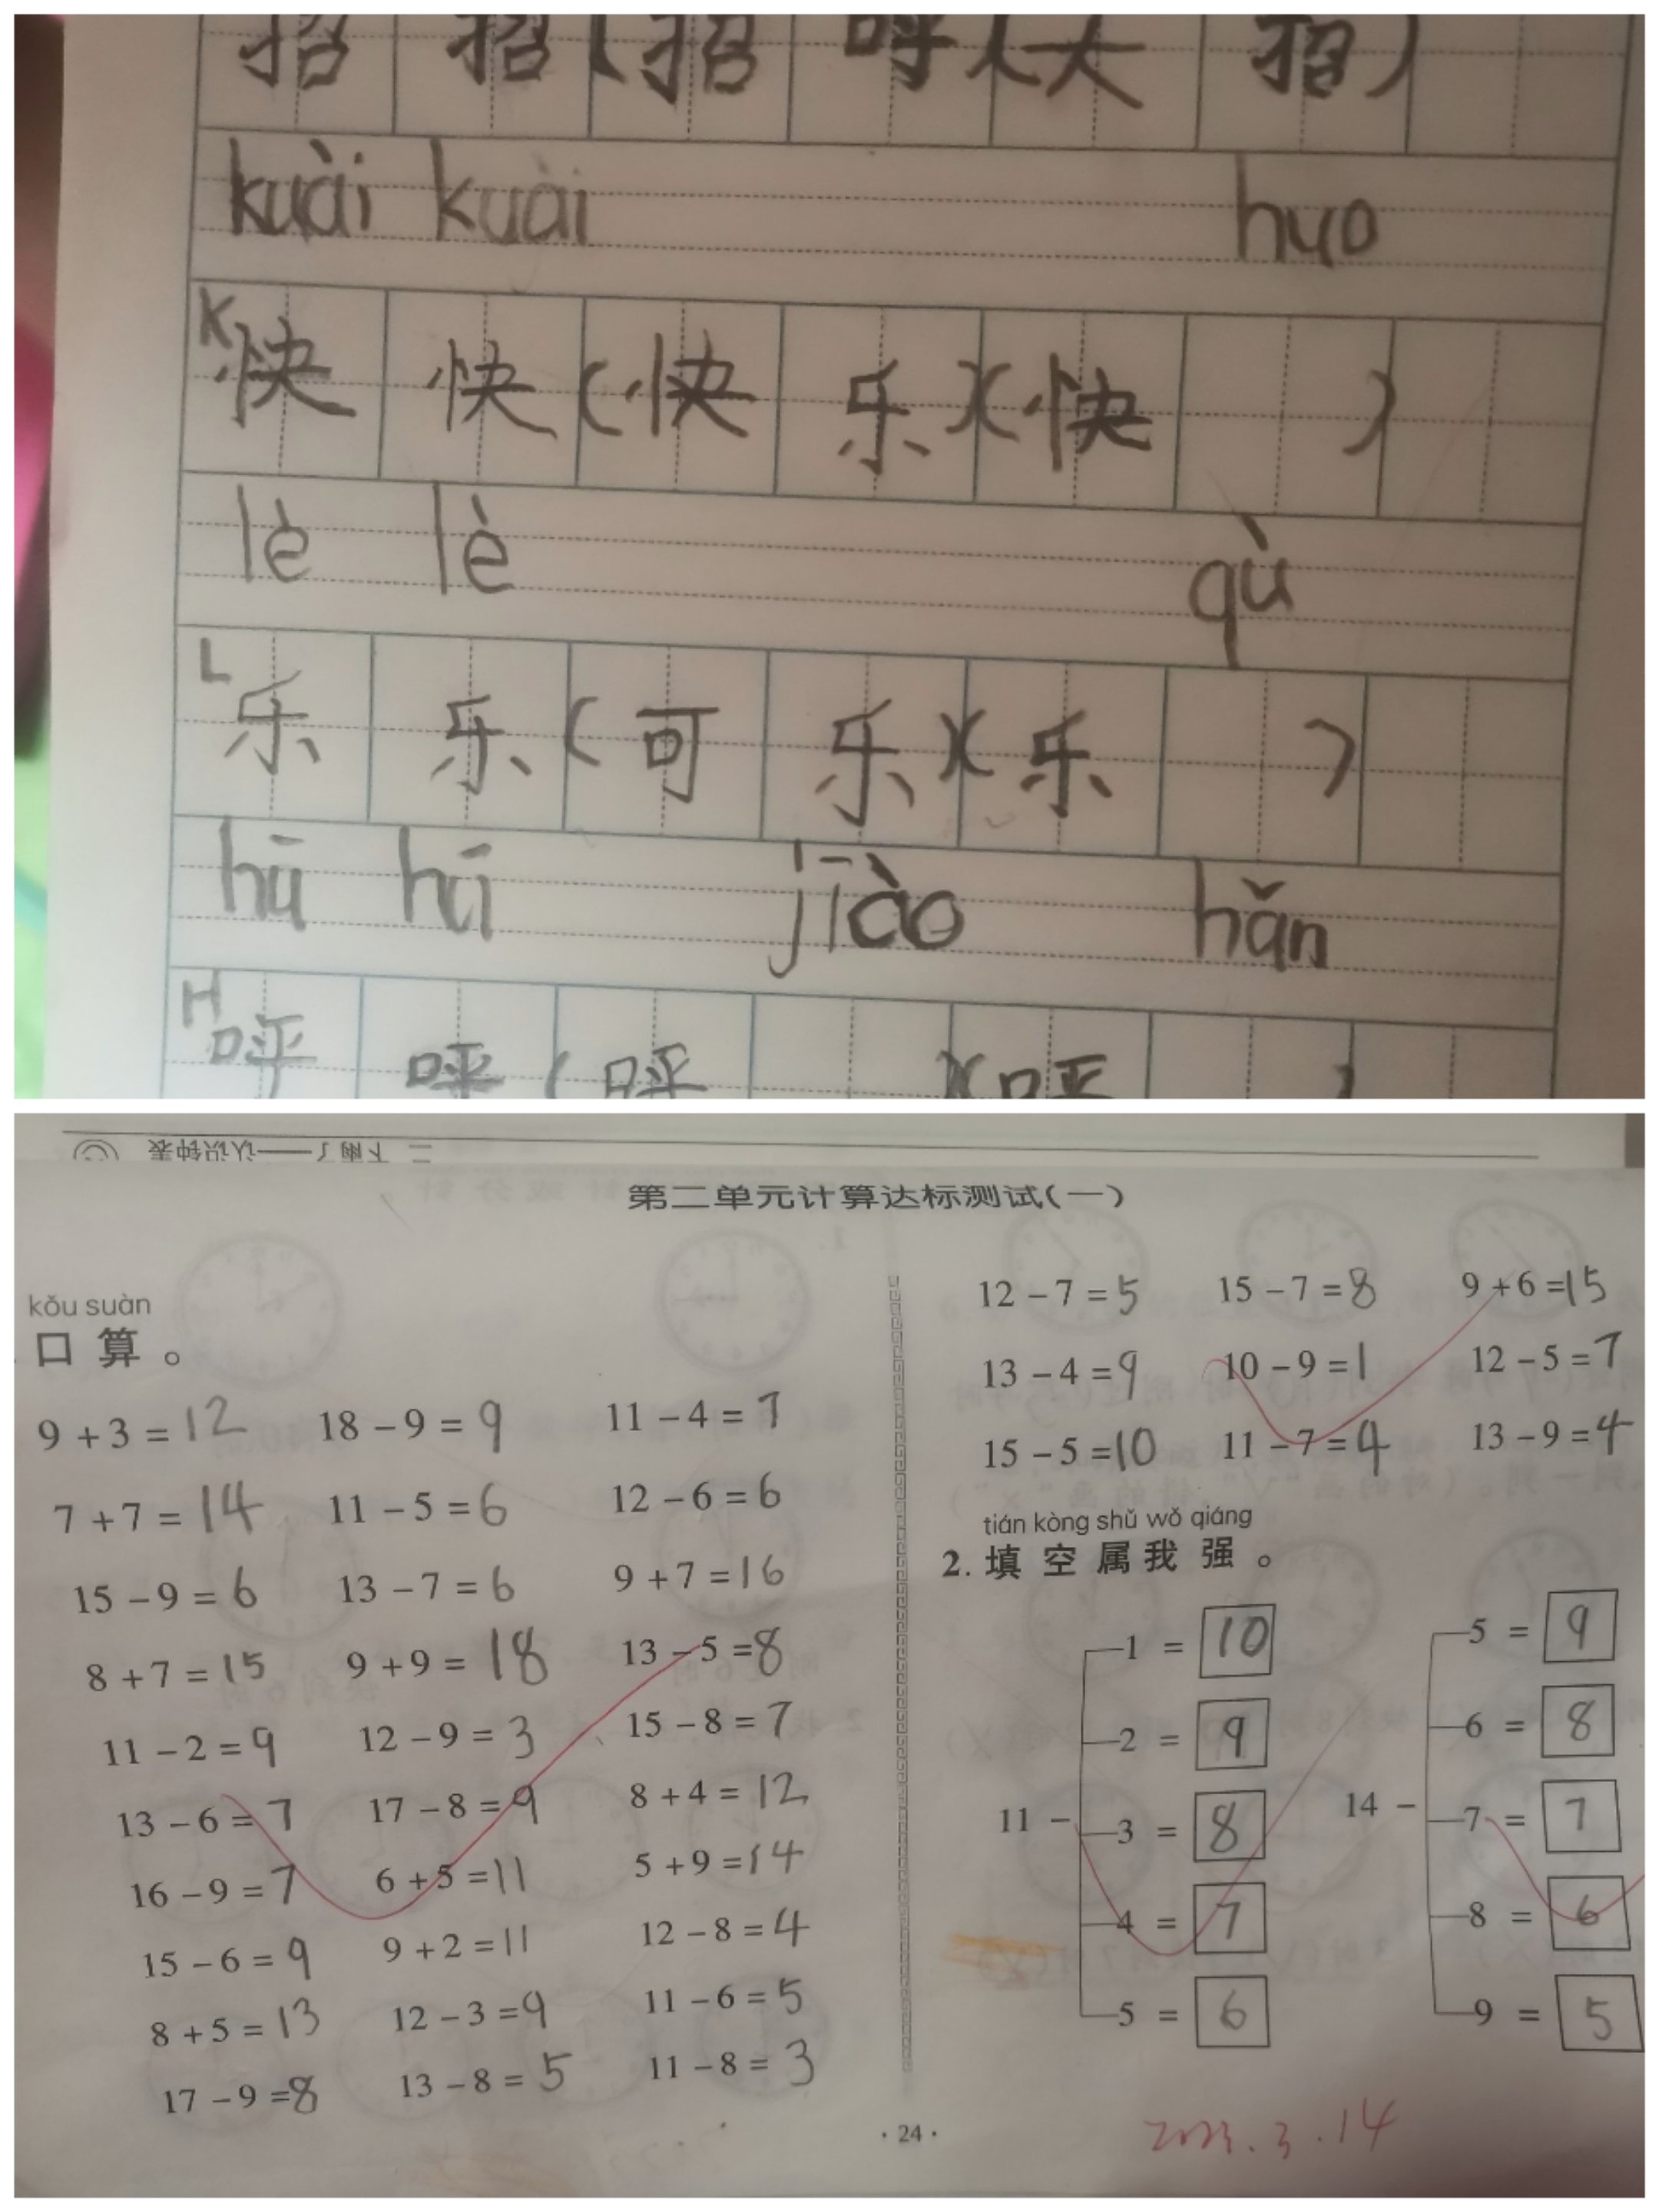 招 招 (招 呼)(大 招)
kuài kuài huo
K
快 快 (快 乐)(快 )
lè lè qù
L
乐 乐 (可 乐)(乐 )
hū hū jiào hǎn
H
呼 呼 (呼 )(呼 )
二 下雨了——认识钟表
第二单元计算达标测试(一)
kǒu suàn
口 算 。
9 + 3 = 12 18 - 9 = 9 11 - 4 = 7
7 + 7 = 14 11 - 5 = 6 12 - 6 = 6
15 - 9 = 6 13 - 7 = 6 9 + 7 = 16
8 + 7 = 15 9 + 9 = 18 13 - 5 = 8
11 - 2 = 9 12 - 9 = 3 15 - 8 = 7
13 - 6 = 7 17 - 8 = 9 8 + 4 = 12
16 - 9 = 7 6 + 5 = 11 5 + 9 = 14
15 - 6 = 9 9 + 2 = 11 12 - 8 = 4
8 + 5 = 13 12 - 3 = 9 11 - 6 = 5
17 - 9 = 8 13 - 8 = 5 11 - 8 = 3
12 - 7 = 5 15 - 7 = 8 9 + 6 = 15
13 - 4 = 9 10 - 9 = 1 12 - 5 = 7
15 - 5 = 10 11 - 7 = 4 13 - 9 = 4
tián kòng shǔ wǒ qiáng
2. 填 空 属 我 强 。
1 = 10 5 = 9
2 = 9 6 = 8
11 - 3 = 8 14 - 7 = 7
4 = 7 8 = 6
5 = 6 9 = 5
· 24 ·
2023.3.14